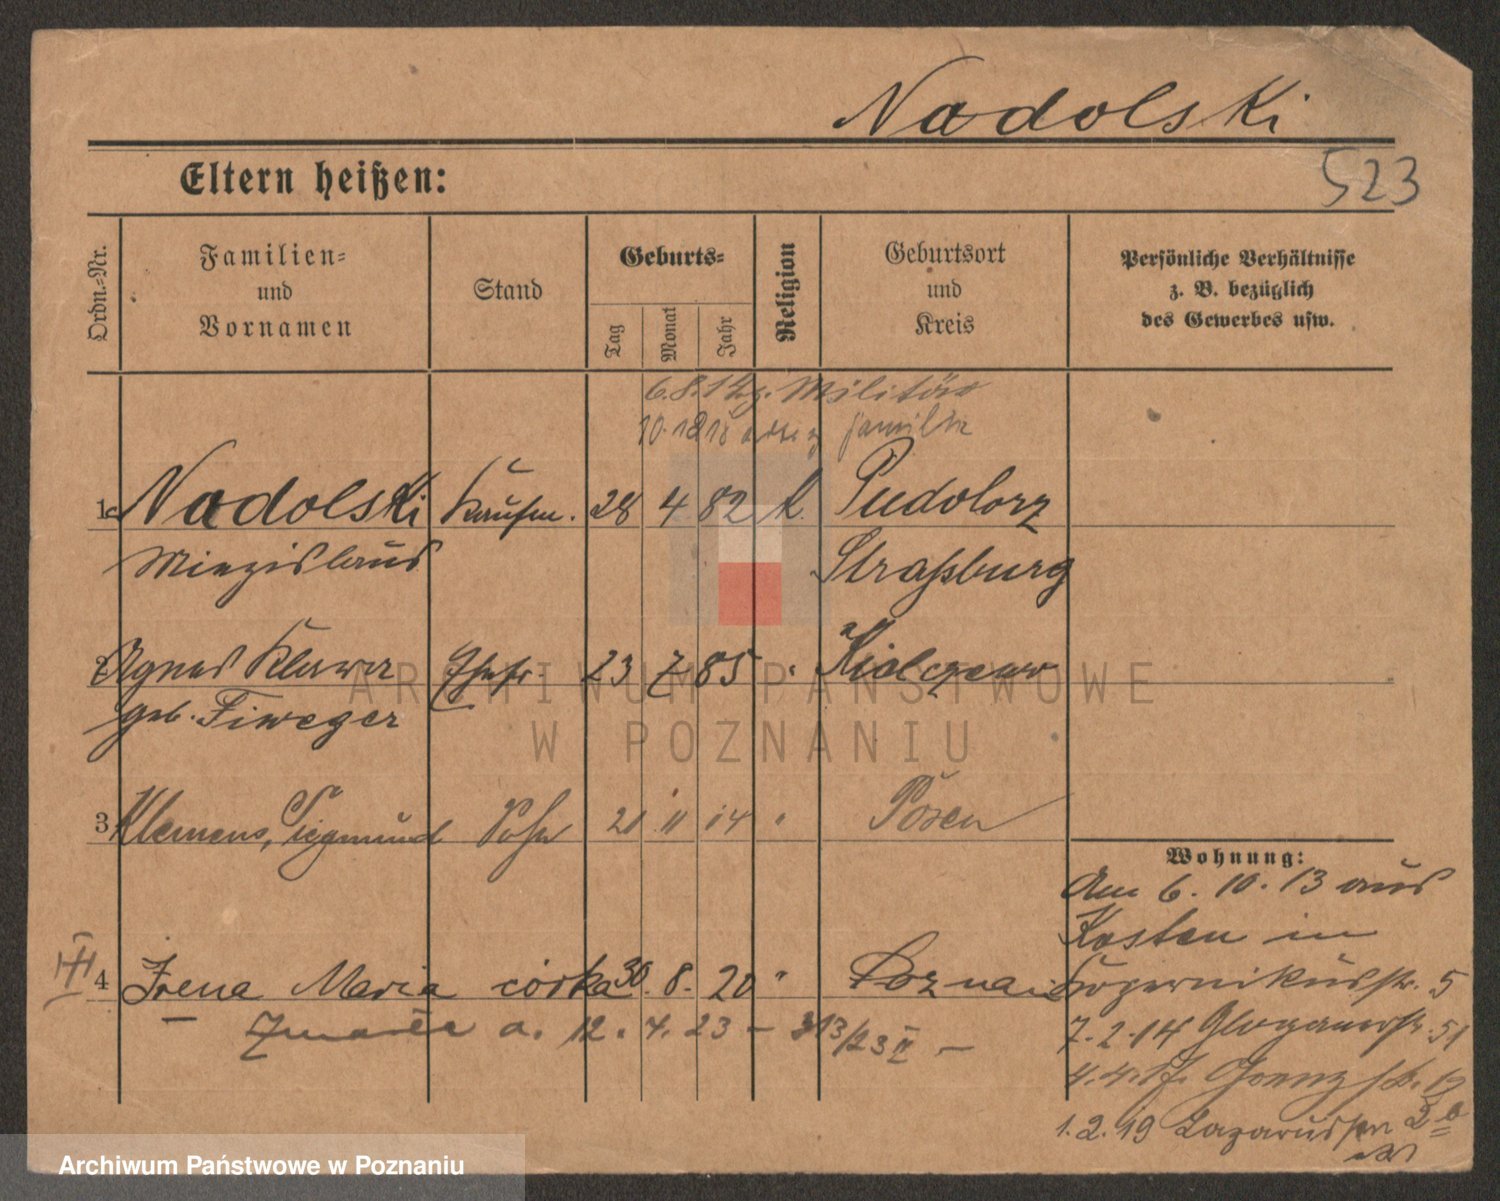 Nadolski
523
Eltern heißen:
Ordn.-Nr.
Familien-
und
Vornamen
Stand
Geburts-
Tag
Monat
Jahr
Religion
Geburtsort
und
Kreis
Persönliche Verhältnisse
z. B. bezüglich
des Gewerbes usw.
6.8.14 z. Militär
10.1918 familie
1 Nadolski Kaufm. 28 4 82 k.
Miezislaus Straßburg
2 Agnes Klara Ehefr. 23 7 85 "
geb. Fiweger
3 Klemens, Siegmund Sohn 21 11 14 " Posen
Wohnung:
Am 6.10.13 aus
Kosten in
Kopernikusstr. 5
III 4 Irena Maria córka 30. 8. 20 " Poznań
Zmarła d. 12. 4. 23 - 313/23 II -
7.2.14 Glogauerstr. 51
1.2.19 Lazarusstr
ARCHIWUM PAŃSTWOWE
W POZNANIU
Archiwum Państwowe w Poznaniu